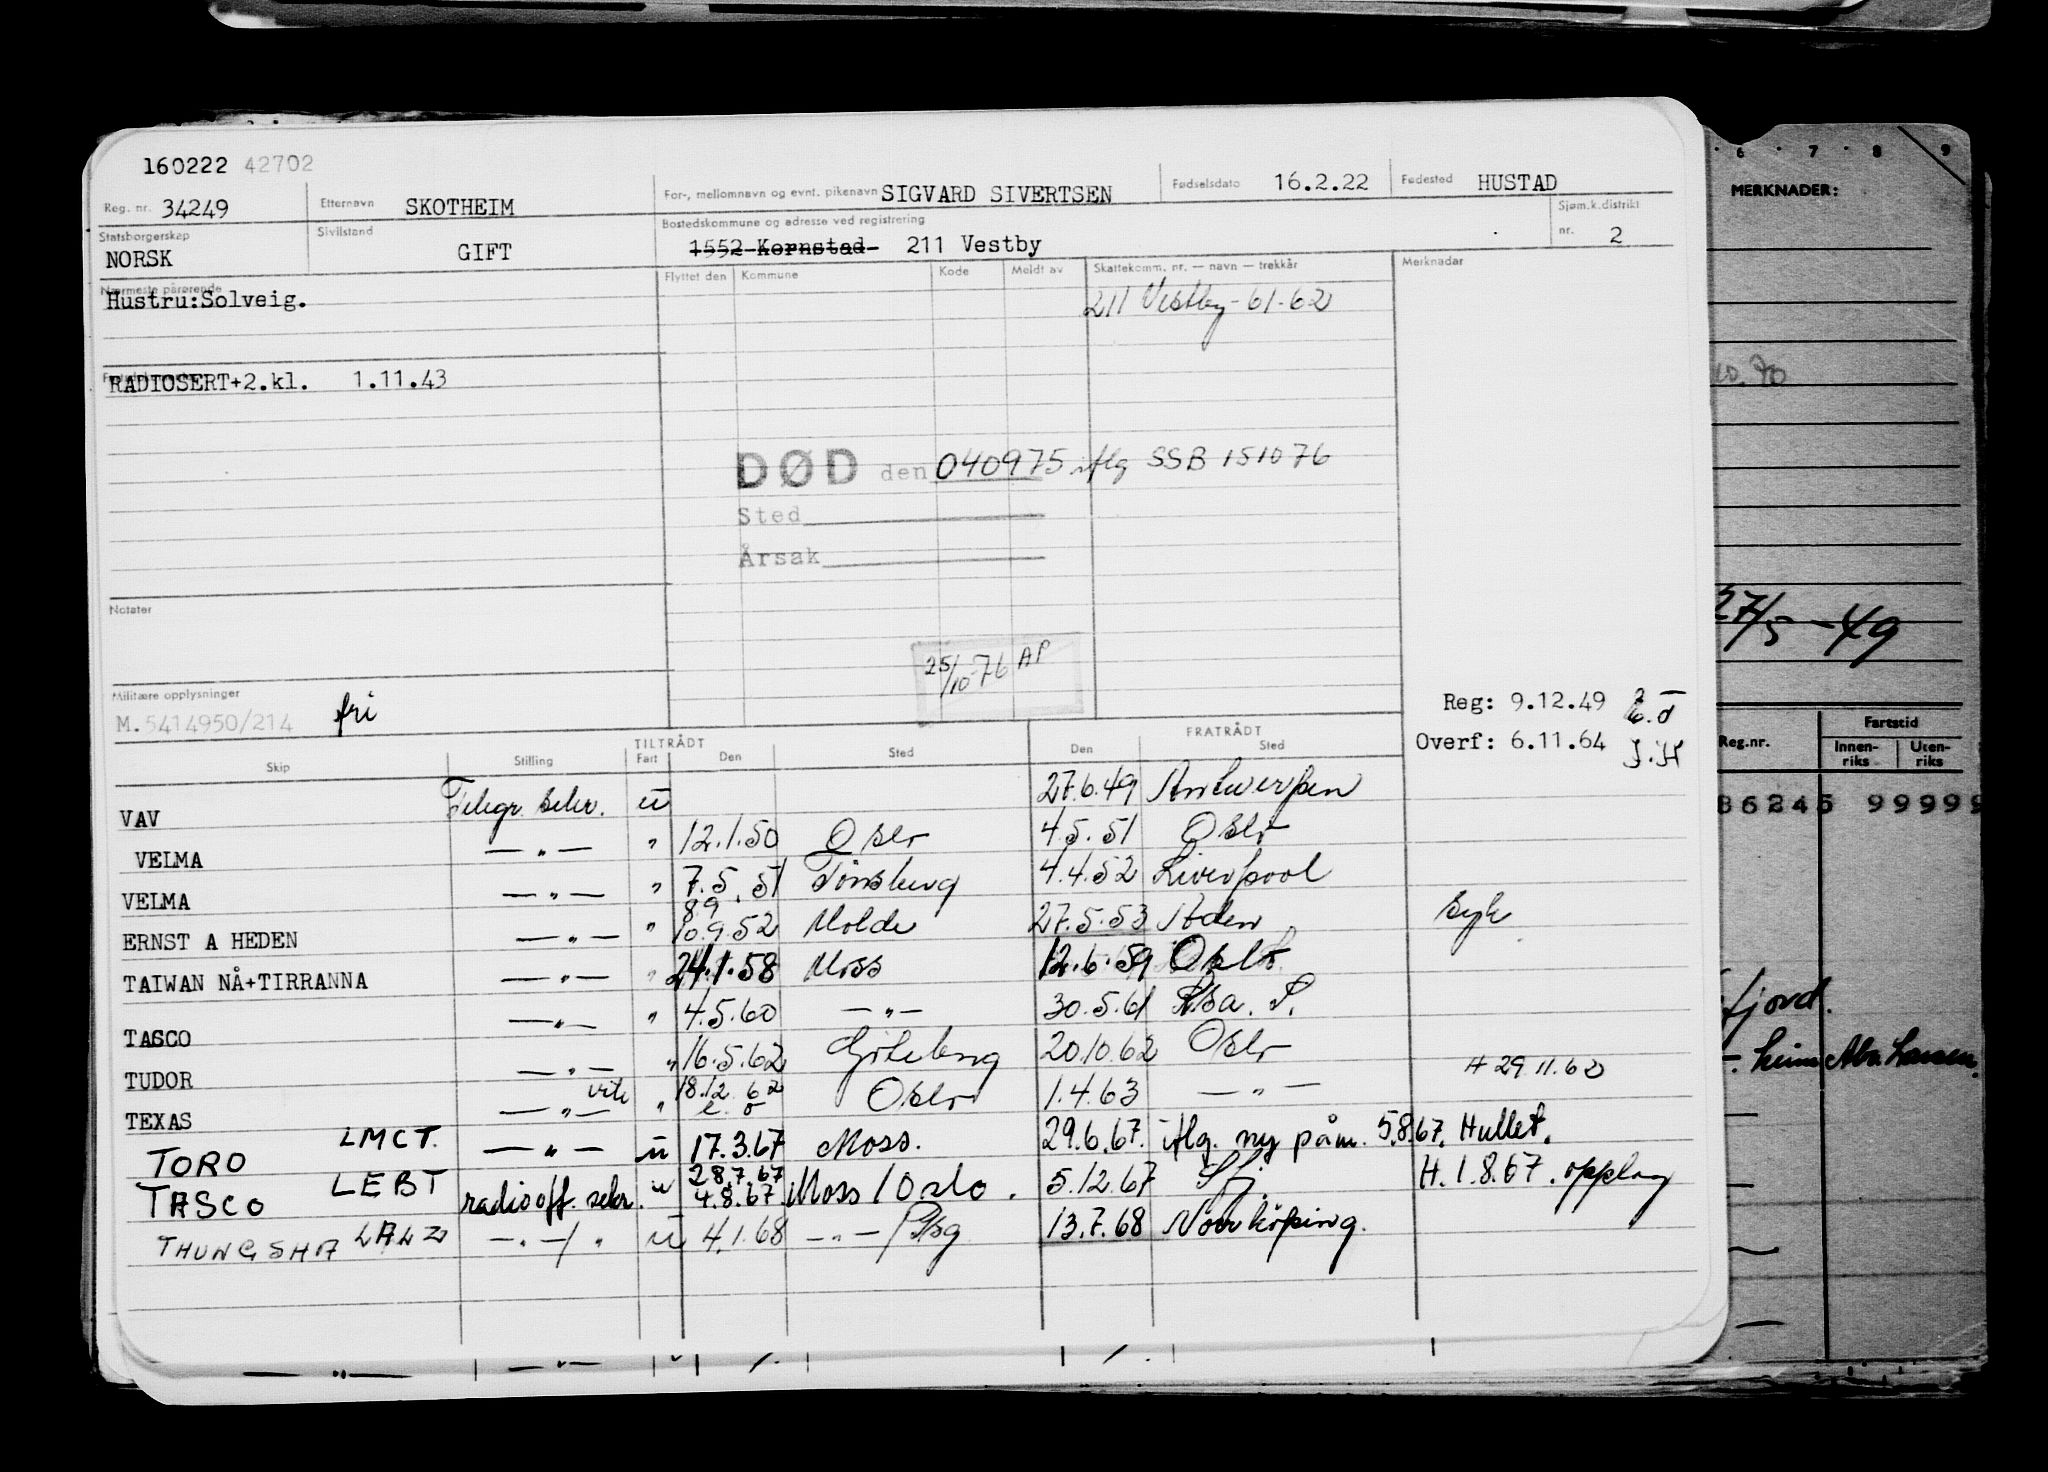 160222 42702
Reg. nr. 34249 Etternavn SKOTHEIM For-, mellomnavn og evnt. pikenavn SIGVARD SIVERTSEN Fødselsdato 16.2.22 Fødested HUSTAD
Statsborgerskap NORSK Sivilstand GIFT Bostedskommune og adresse ved registrering 1552 Kornstad 211 Vestby Sjøm.k.distrikt nr. 2
Nærmeste pårørende Flyttet den Kommune Kode Meldt av Skattekomm. nr. — navn — trekkår Merknader
Hustru:Solveig. 211 Vestby - 61-62
RADIOSERT+2.kl. 1.11.43
DØD den 040975 iflg SSB 151076
Sted
Årsak
Notater
25/10-76 AP
Militære opplysninger
M.5414950/214 fri
Reg: 9.12.49
Overf: 6.11.64 J.H
TILTRÅDT FRATRÅDT
Skip Stilling Fart Den Sted Den Sted
VAV Telegr. sekr. u 27.6.49 Antwerpen
VELMA — " — " 12.1.50 Oslo 4.5.51 Oslo
VELMA — " — " 7.5.51 Tønsberg 4.4.52 Liverpool
ERNST A HEDEN — " — " 8.9 10.9.52 Molde 27.5.53 Aden syk
TAIWAN NÅ+TIRRANNA — " — " 24.1.58 Moss 12.6.59 Oslo
TASCO — " — " 4.5.60 — " — 30.5.61
TUDOR — " — " 16.5.62 Göteborg 20.10.62 Oslo H 29.11.62
TEXAS — " — " 18.12.62 Oslo 1.4.63 — " —
TORO LMCT. — " — u 17.3.67 Moss. 29.6.67. iflg. ny påm. 5.8.67. Hullet.
TASCO LEBT radiooff. sekr. u 28.7.67 4.8.67. Moss / Oslo. 5.12.67 H. 1.8.67. opplag
THUNGSHA LALZ — " — / " u 4.1.68 — " — / Pbg 13.7.68 Norrköping.
6 7 8 9
MERKNADER:
10.70
27/5 - 49
Reg.nr. Fartstid
Innen-riks Uten-riks
86245 99999
fjord.